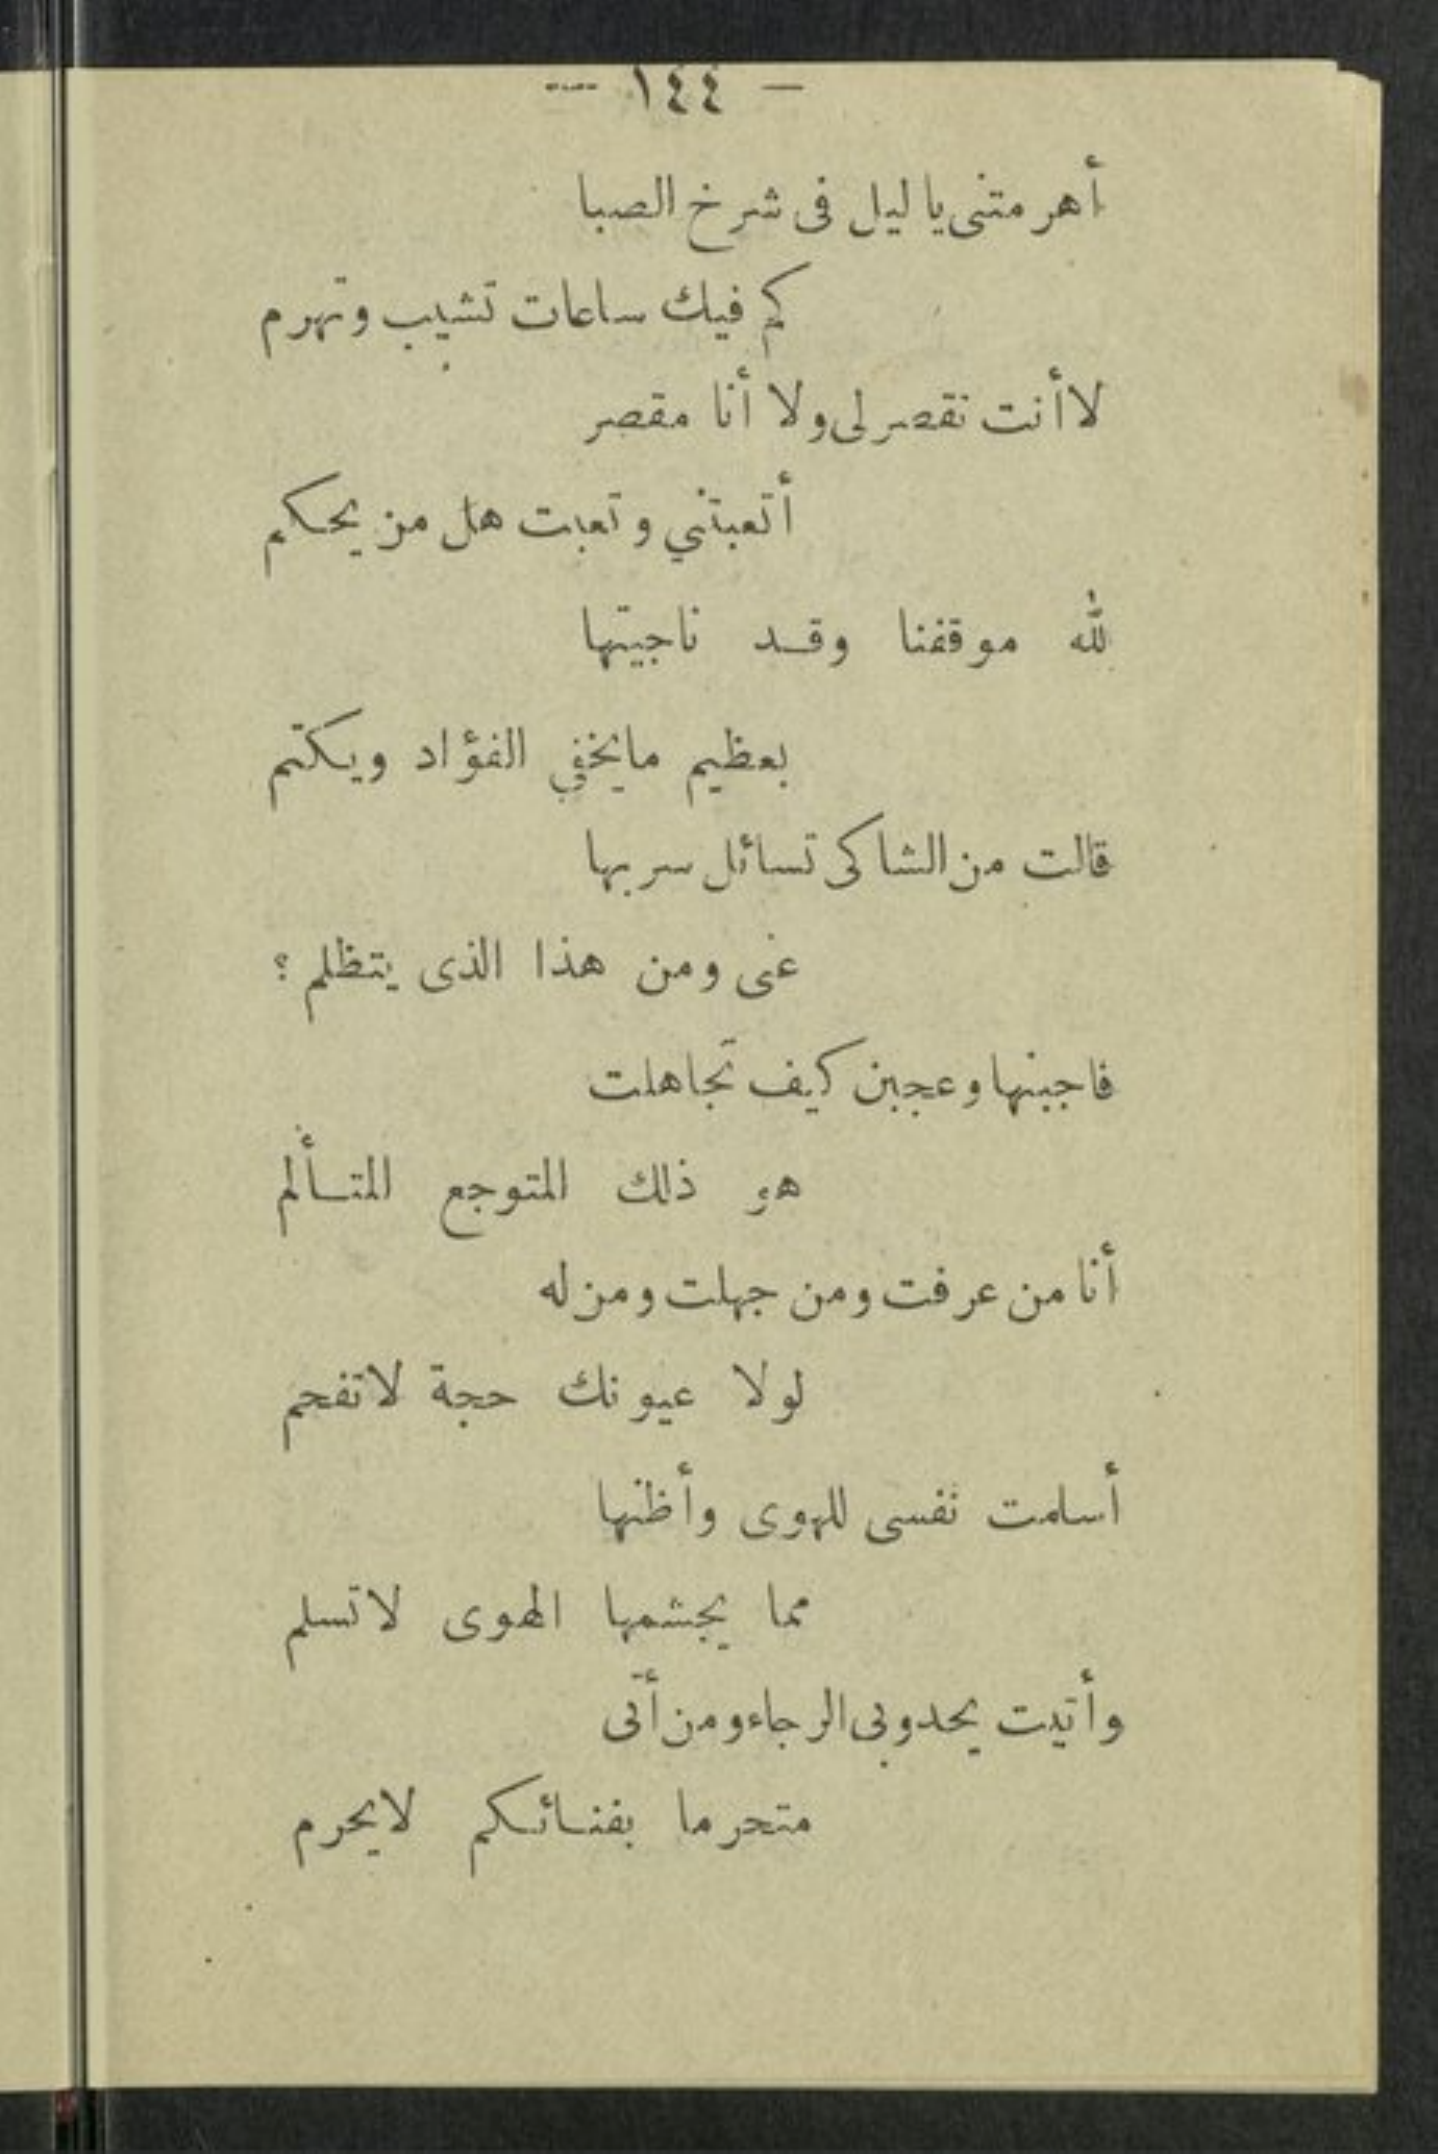 — ١٤٤ —
أهرمتنى يا ليل فى شرخ الصبا
كم فيك ساعات تشيب وتهرم
لا أنت تقصر لى ولا أنا مقصر
أتعبتني وتعبت هل من يحكم
لله موقفنا وقد ناجيتها
بعظيم ما يخفي الفؤاد ويكتم
قالت من الشاكى تسائل سربها
عنى ومن هذا الذى يتظلم ؟
فاجبنها وعجبن كيف تجاهلت
هو ذلك المتوجع المتألم
أنا من عرفت ومن جهلت ومن له
لولا عيونك حجة لا تفحم
أسلمت نفسى للهوى وأظنها
مما يجشمها الهوى لا تسلم
وأتيت يحدو بى الرجاء ومن أتى
متحرما بفنائكم لا يحرم